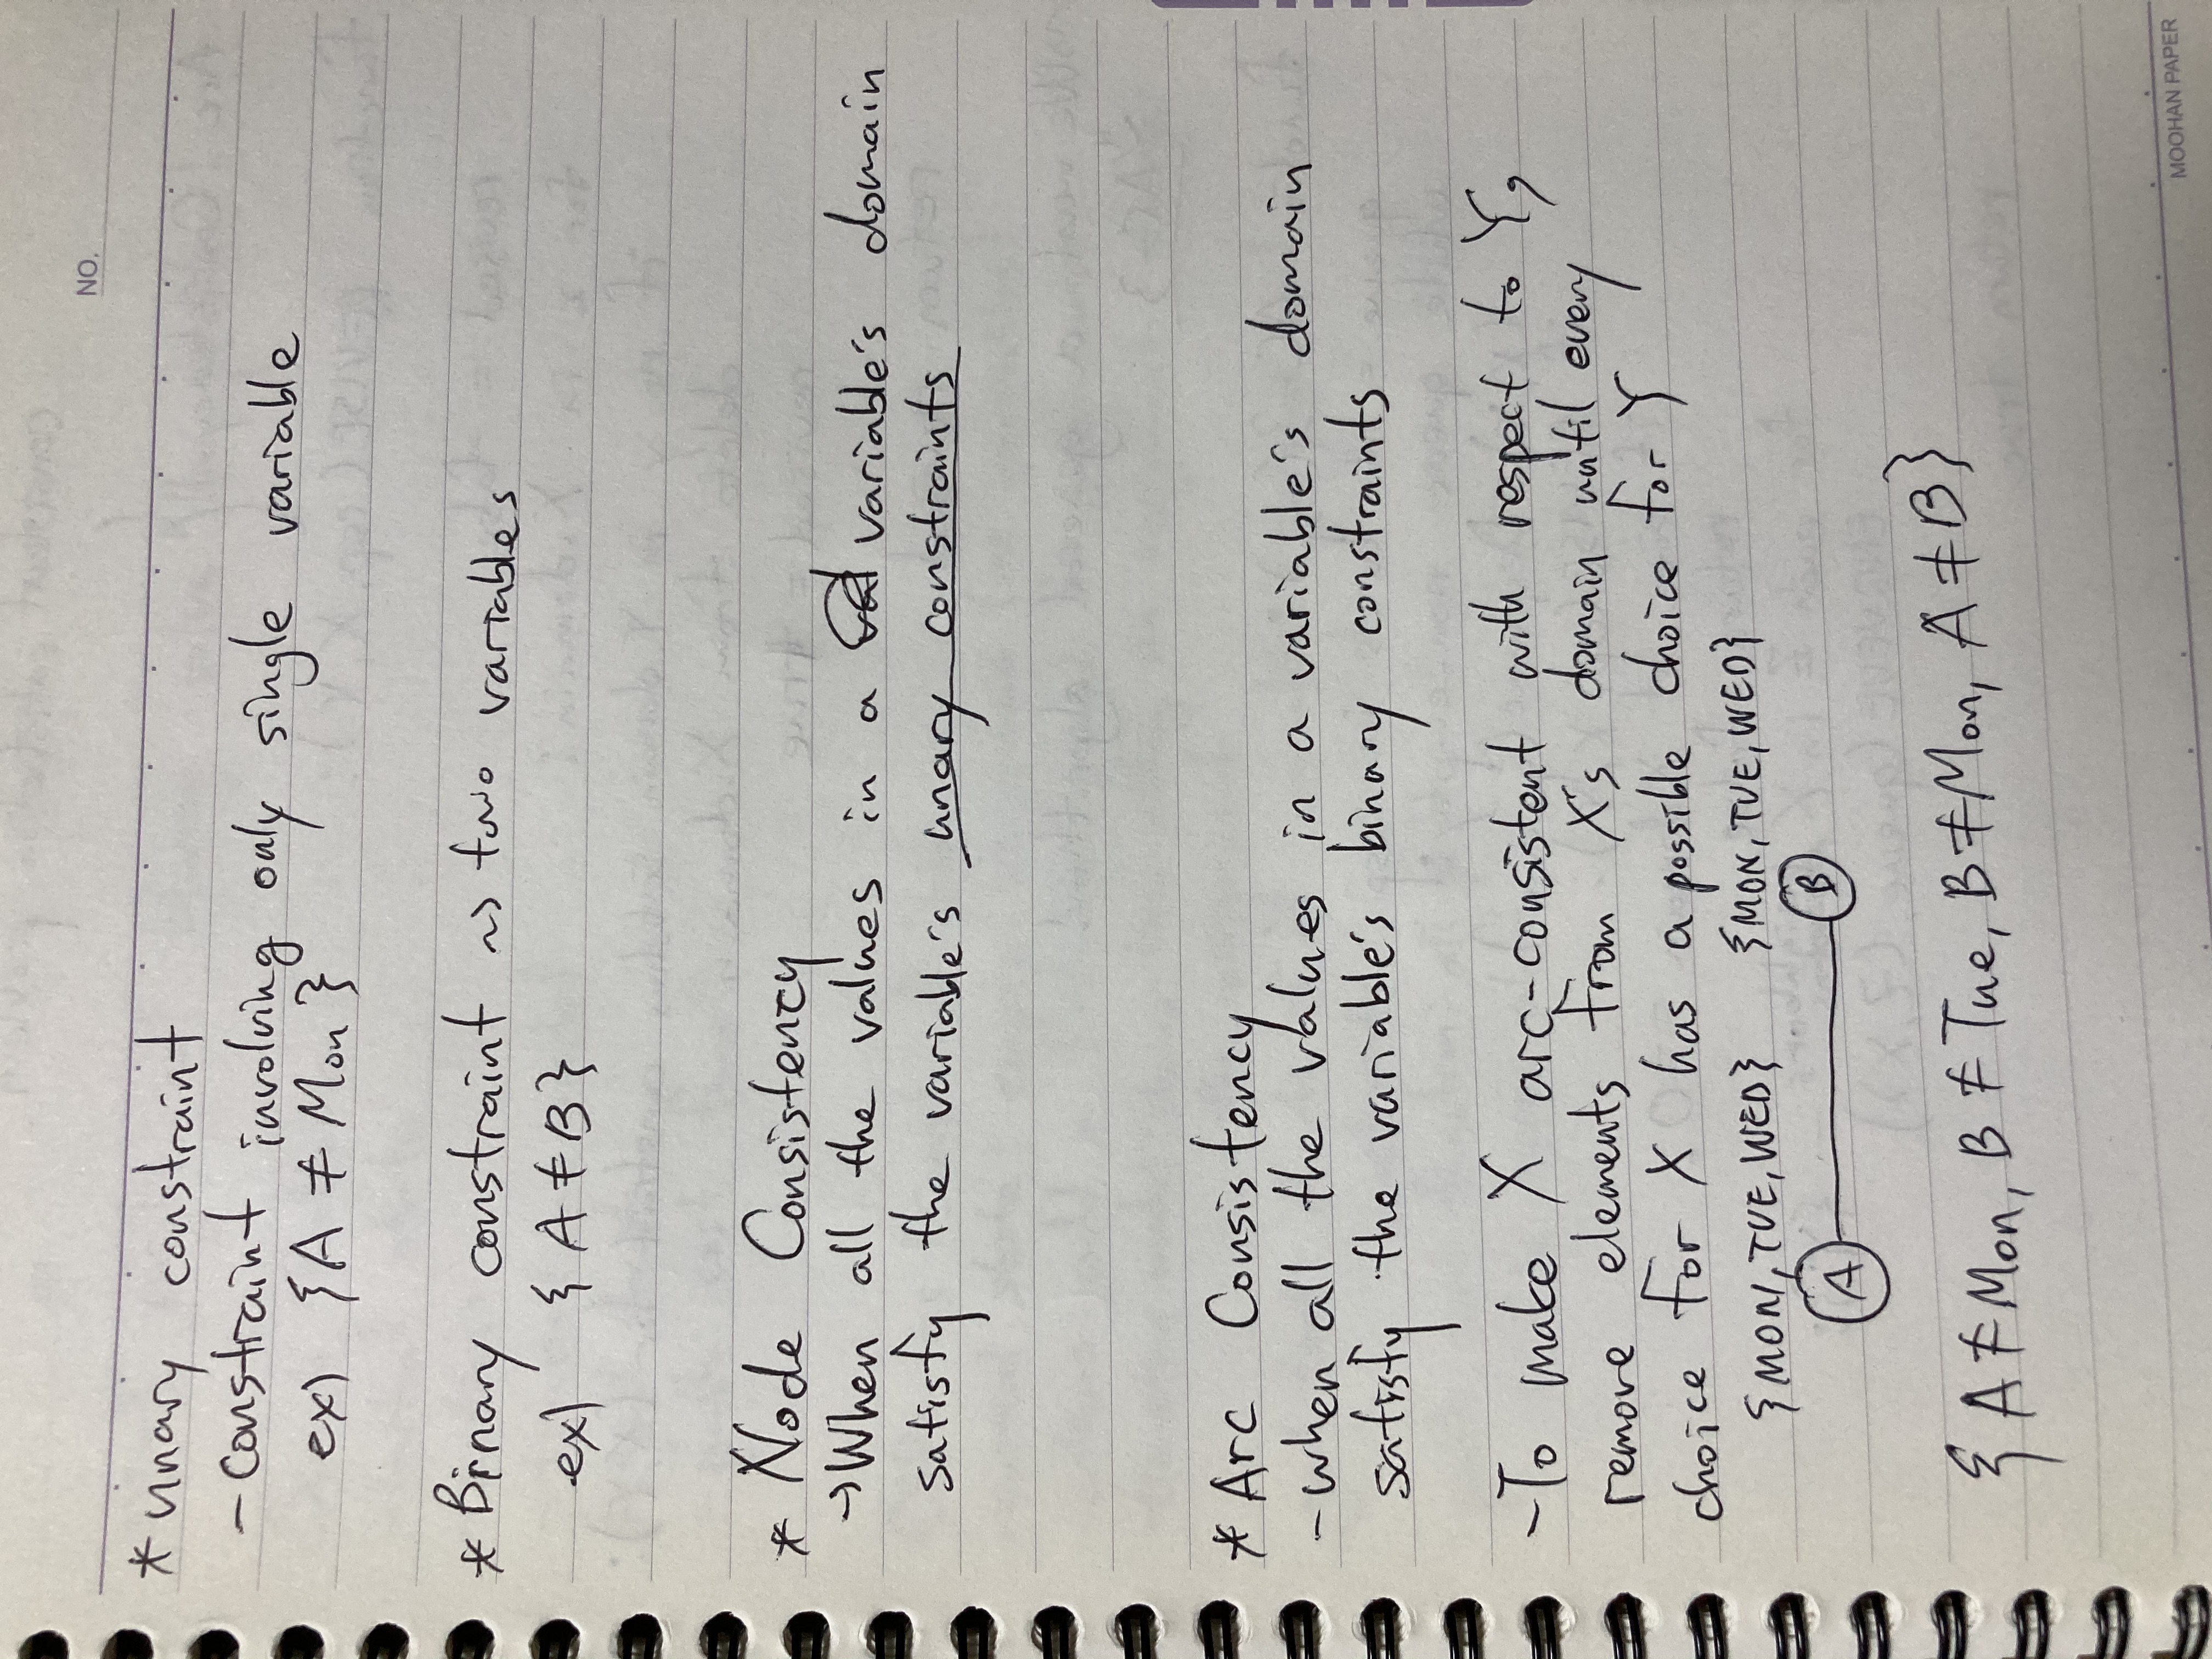 NO.
* unary constraint
- constraint involving only single variable
ex) {A ≠ Mon}
* Binary constraint ~> two variables
ex) {A ≠ B}
* Node Consistency
→ When all the values in a variable's domain
satisfy the variable's unary constraints
* Arc Consistency
- when all the values in a variable's domain
satisfy the variable's binary constraints
- To make X arc-consistent with respect to Y,
remove elements from X's domain until every
choice for X has a possible choice for Y
{MON, TUE, WED} {MON, TUE, WED}
A B
{A ≠ Mon, B ≠ Tue, B ≠ Mon, A ≠ B}
MOOHAN PAPER